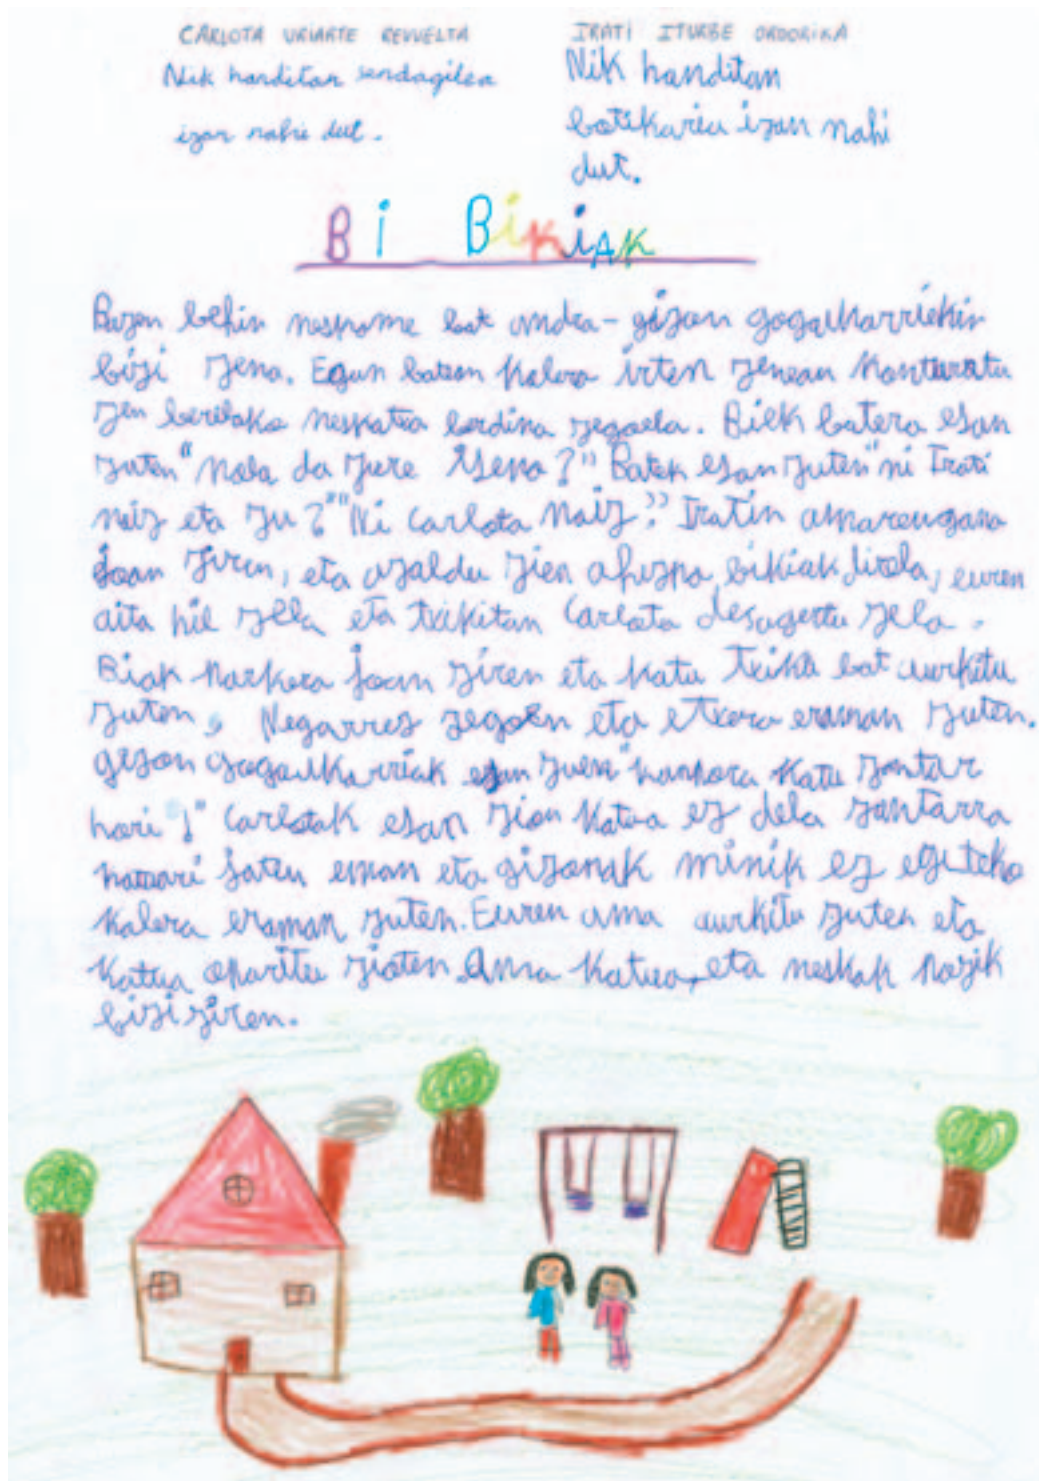 CARLOTA URIARTE REVUELTA
Nik handitan sendagilea
izan nahi dut.
IRATI ITURBE ORDORIKA
Nik handitan
botikaria izan nahi
dut.
BI BIKIAK
Bazen behin neskame bat andra-gizon gogaikarriekin
bizi zena. Egun batean kalera irten zenean konturatu
zen berelako neskatxa berdina zegoela. Biek batera esan
zuten "Nola da zure izena?" Batek esan zuten "ni Irati
naiz eta zu?" "Ni Carlota naiz." Iratin amarengana
joan ziren, eta azaldu zien ahizpa bikiak direla, euren
aita hil zela eta txikitan Carlota desagertu zela.
Biak parkera joan ziren eta katu txiki bat aurkitu
zuten. Negarrez zegoen eta etxera eraman zuten.
gizon gogaikarriak esan zuen "kanpora katu zantar
hori!" Carlotak esan zion katua ez dela zantarra
katuari jaten eman eta gizonak minik ez egiteko
kalera eraman zuten. Euren ama aurkitu zuten eta
katua oparitu zioten. Ama katua, eta neskak pozik
bizi ziren.